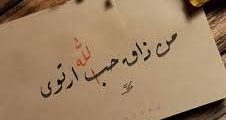 من ذاق حب الله ارتوى